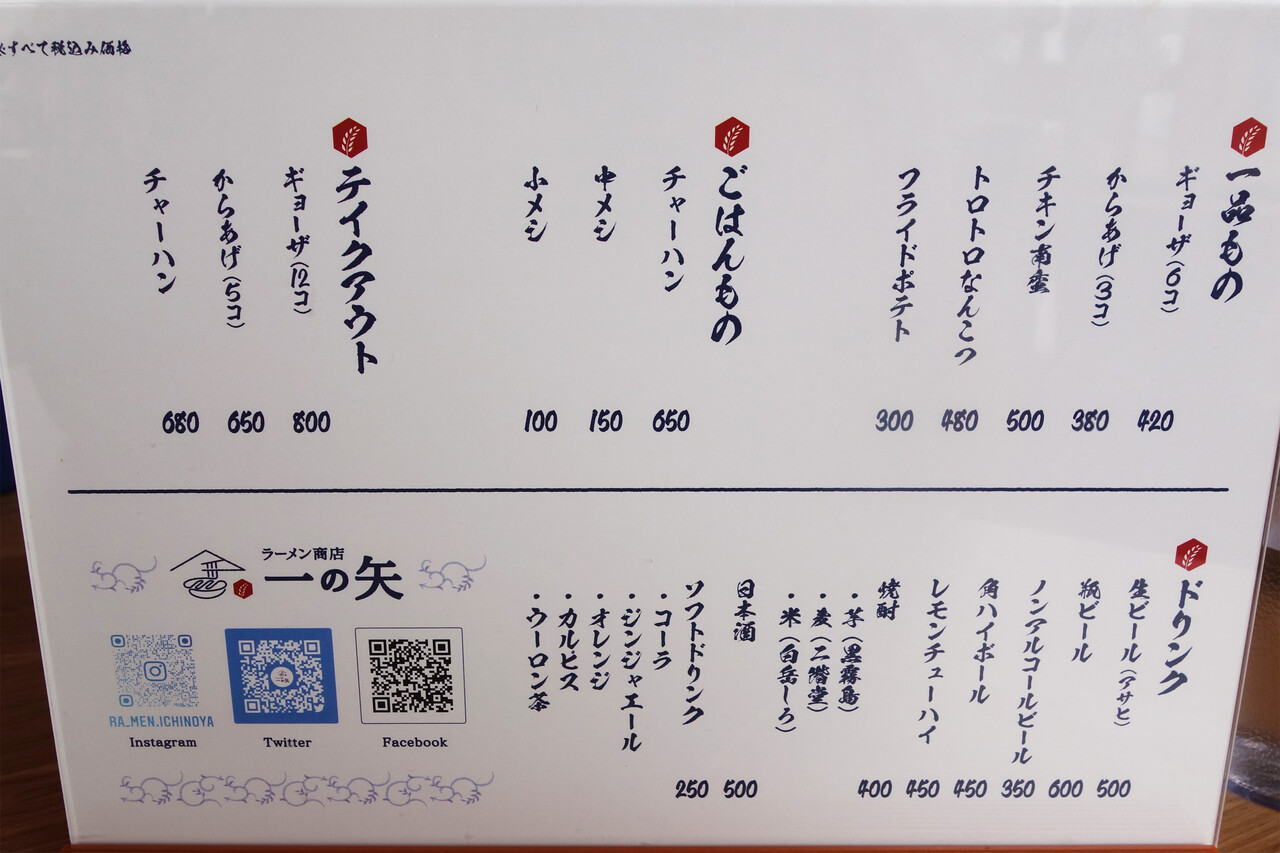 ※すべて税込み価格
一品もの
ギョーザ(6コ) 420
からあげ(3コ) 380
チキン南蛮 500
トロトロなんこつ 480
フライドポテト 300
ごはんもの
チャーハン 650
中メシ 150
小メシ 100
テイクアウト
ギョーザ(12コ) 800
からあげ(5コ) 650
チャーハン 680
ドリンク
生ビール(アサヒ) 500
瓶ビール 600
ノンアルコールビール 350
角ハイボール 450
レモンチューハイ 450
焼酎 400
・芋(黒霧島)
・麦(二階堂)
・米(白岳しろ)
日本酒 500
ソフトドリンク 250
・コーラ
・ジンジャエール
・オレンジ
・カルピス
・ウーロン茶
ラーメン商店
一の矢
RA_MEN.ICHINOYA
Instagram
Twitter
Facebook